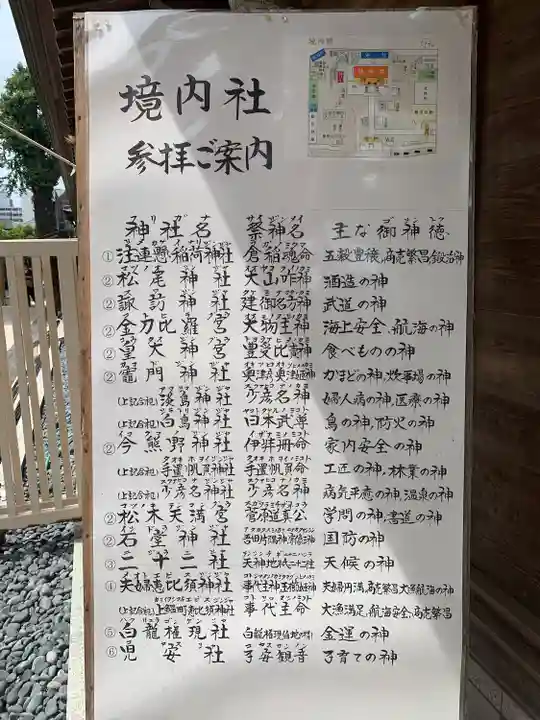 境内社
参拝ご案内
境内図
神社名 祭神名 主な御神徳
① 注連懸稲荷神社 倉稲魂命 五穀豊穣、商売繁昌、鍛冶神
② 松尾神社 大山咋神 酒造の神
② 諏訪神社 建御名方神 武道の神
② 金刀比羅宮 大物主神 海上安全、航海の神
② 皇大神宮 豊受比売神 食べものの神
② 竈門神社 奥津彦奥津姫神 かまどの神、炊事場の神
(上記合社) 淡島神社 少彦名神 婦人病の神、医療の神
(上記合社) 白鳥神社 日本武尊 鳥の神、防火の神
② 今熊野神社 伊弉冊命 家内安全の神
(上記合社) 手置帆負神社 手置帆負命 工匠の神、林業の神
(上記合社) 少彦名神社 少彦名神 病気平癒の神、温泉の神
② 松木天満宮 菅原道真公 学問の神、書道の神
② 石堂神社 国防の神
③ 二十二社 天神地祇二十二社 天候の神
④ 夫婦恵比須神社 事代主神 夫婦円満、商売繁昌、大漁航海の神
(上記合社) 上鰯町恵比須神社 事代主命 大漁満足、航海安全、商売繁昌
⑤ 白龍権現社 白龍権現 金運の神
⑥ 児安社 子安観音 子育ての神